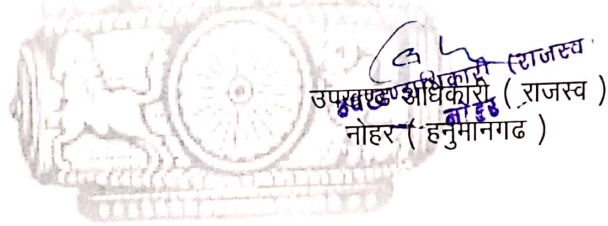 उपखण्ड अधिकारी (राजस्व
नोहर
उपखण्ड अधिकारी ( राजस्व )
नोहर ( हनुमानगढ )